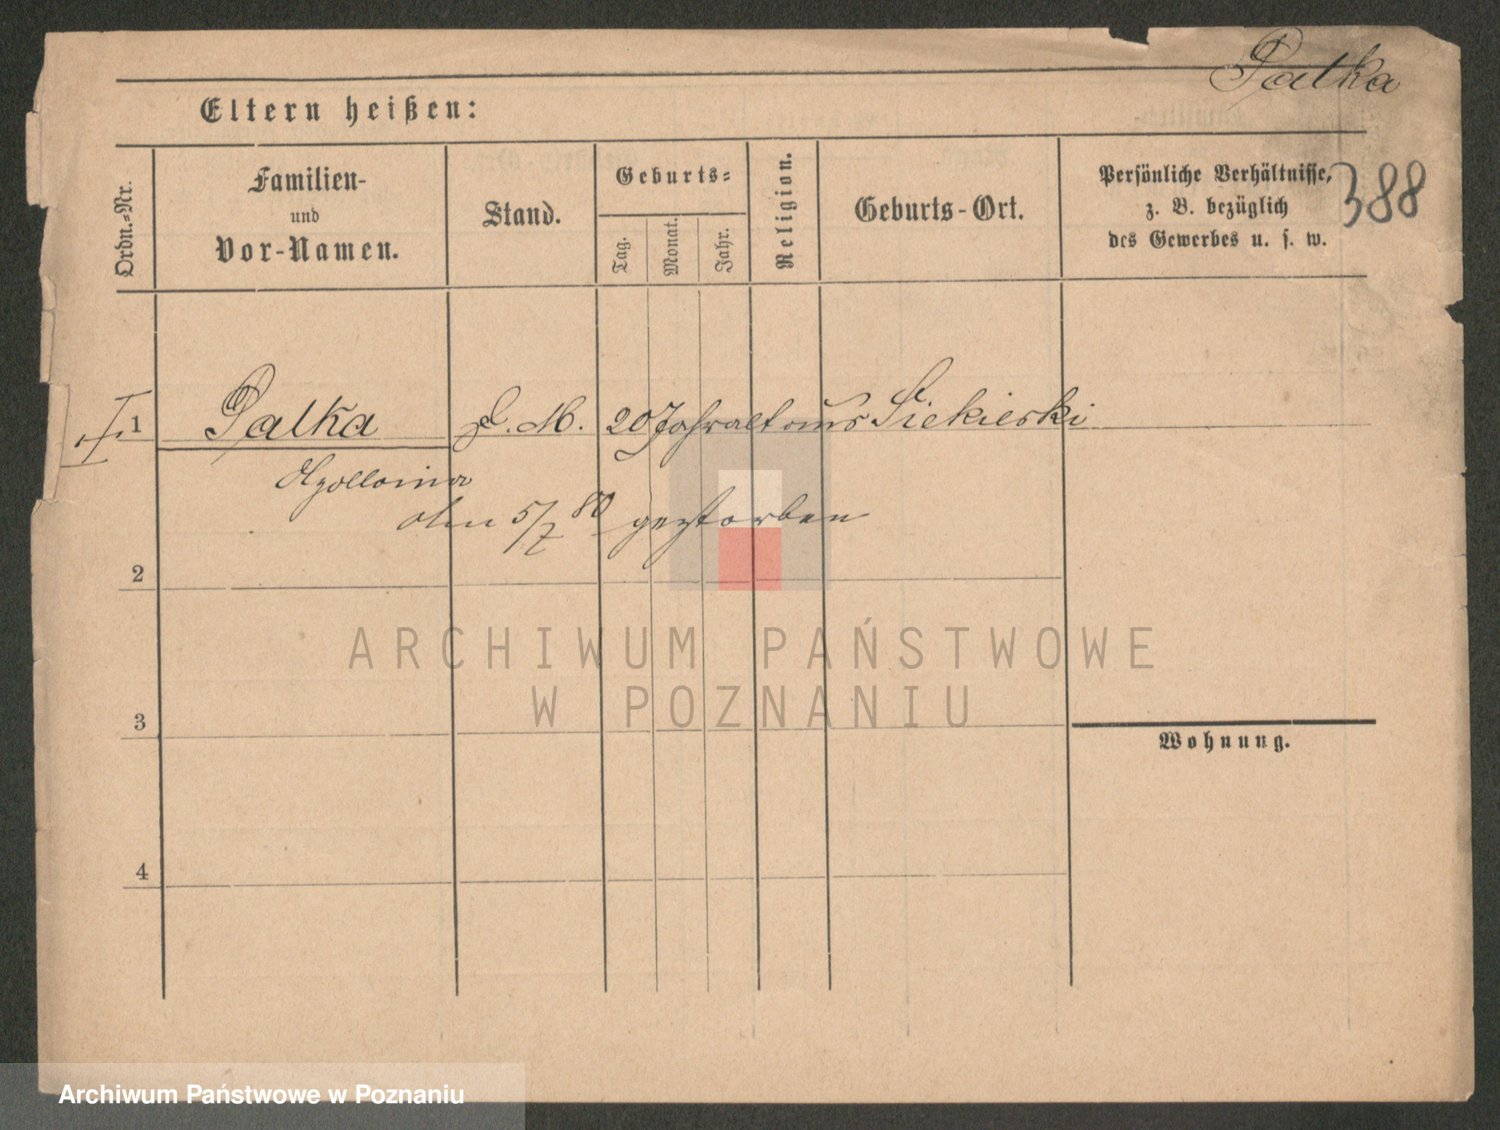 Palka
Eltern heißen:
Ordn.-Nr.
Familien-
und
Vor-Namen.
Stand.
Geburts-
Tag.
Monat.
Jahr.
Religion.
Geburts-Ort.
Persönliche Verhältnisse,
z. B. bezüglich
des Gewerbes u. s. w.
388
1 Palka D. M. 20 Jahr alt aus Siekierki
Apollonia
am 5/7 80 gestorben
2
ARCHIWUM PAŃSTWOWE
W POZNANIU
3
Wohnung.
4
Archiwum Państwowe w Poznaniu